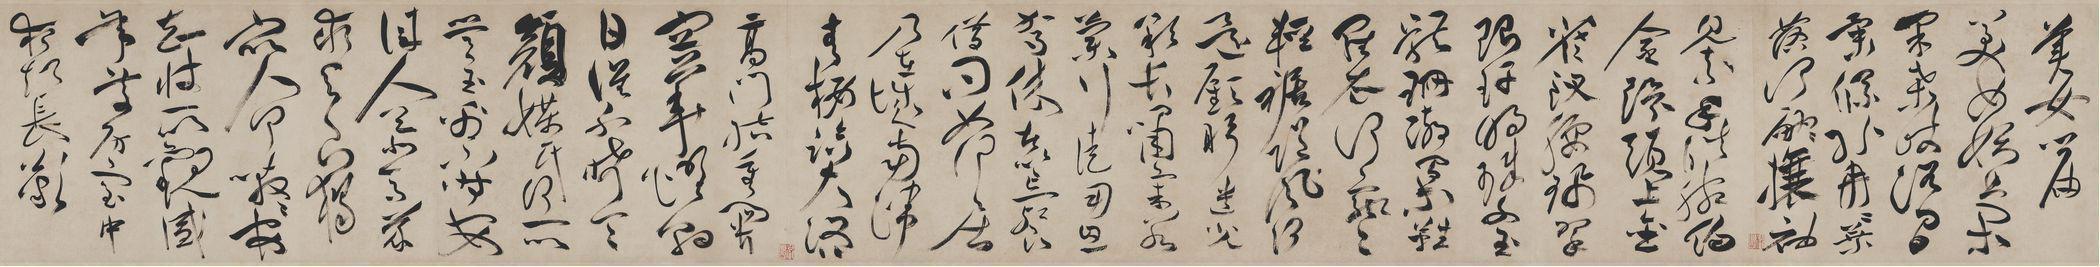 美女篇
美女妖且閑
采桑歧路間
柔條紛冉冉葉
落何翩翩攘袖
見素手皓腕約
金環頭上金
爵釵腰佩翠
琅玕明珠交玉
體珊瑚間木難
羅衣何飄飄
輕裾隨風
還顧盼遺光
彩長嘯氣若
蘭行徒用息
駕休者以忘餐
借問女何居
乃在城南端
青樓臨大路
高門結重關
容華耀朝
日誰不希令
顏媒氏何所
營玉帛不時安
佳人慕高義
求賢良獨
眾人何嗷嗷安
知彼所觀盛
年處房室中
夜起長歎